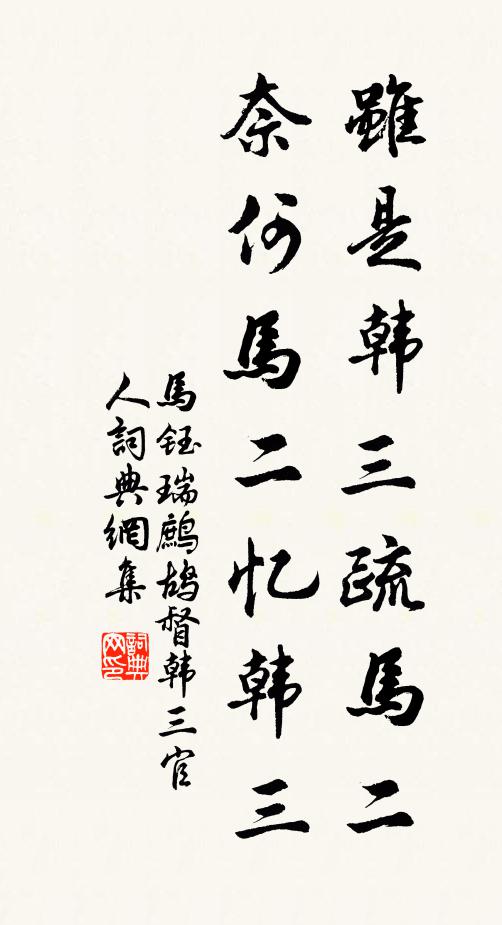 雖是韩三疏馬二
奈何馬二忆韩三
馬鈺瑞鷓鴣督韩三官
人詞典網集
詞典
网印